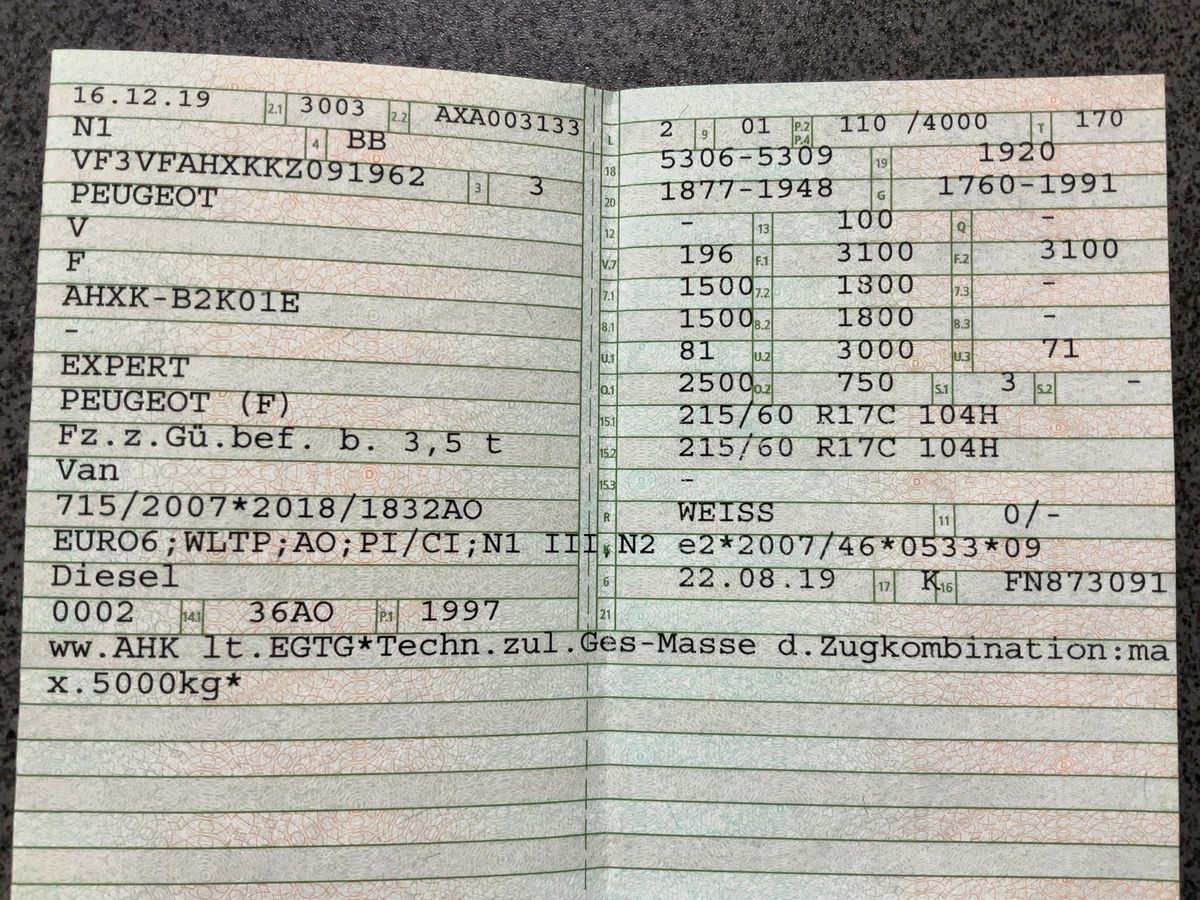 16.12.19 2.1 3003 2.2 AXA003133
N1 4 BB
VF3VFAHXKKZ091962 3 3
PEUGEOT
V
F
AHXK-B2K01E
-
EXPERT
PEUGEOT (F)
Fz.z.Gü.bef. b. 3,5 t
Van
715/2007*2018/1832AO
EURO6;WLTP;AO;PI/CI;N1 III,N2
Diesel
0002 14.1 36AO P.1 1997
L 2 9 01 P.2 P.4 110 /4000 T 170
18 5306-5309 19 1920
20 1877-1948 G 1760-1991
12 - 13 100 Q -
V.7 196 F.1 3100 F.2 3100
7.1 1500 7.2 1800 7.3 -
8.1 1500 8.2 1800 8.3 -
U.1 81 U.2 3000 U.3 71
O.1 2500 O.2 750 S.1 3 S.2 -
15.1 215/60 R17C 104H
15.2 215/60 R17C 104H
15.3 -
R WEISS 11 0/-
K e2*2007/46*0533*09
6 22.08.19 17 K 16 FN873091
21
ww.AHK lt.EGTG*Techn.zul.Ges-Masse d.Zugkombination:ma
x.5000kg*